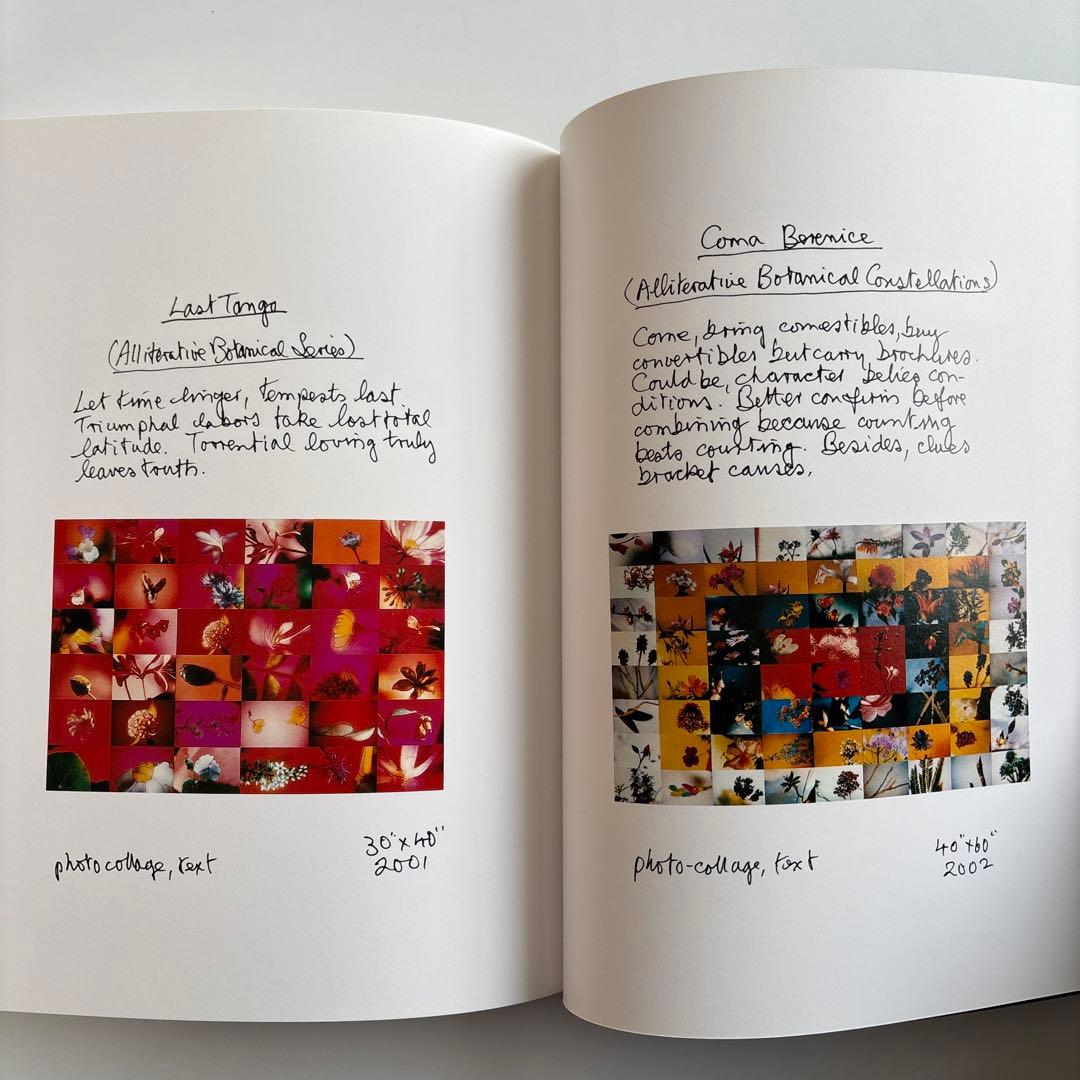 Last Tango
(Alliterative Botanical Series)
Let time linger, tempests last.
Triumphal labors take lost total
latitude. Torrential loving truly
leaves truth.
photocollage, text
30"x40"
2001
Coma Berenice
(Alliterative Botanical Constellations)
Come, bring comestibles, buy
convertibles but carry brochures.
Could be, character belies con-
ditions. Better confirm before
combining because counting
beats courting. Besides, clues
bracket causes.
photo-collage, text
40"x60"
2002